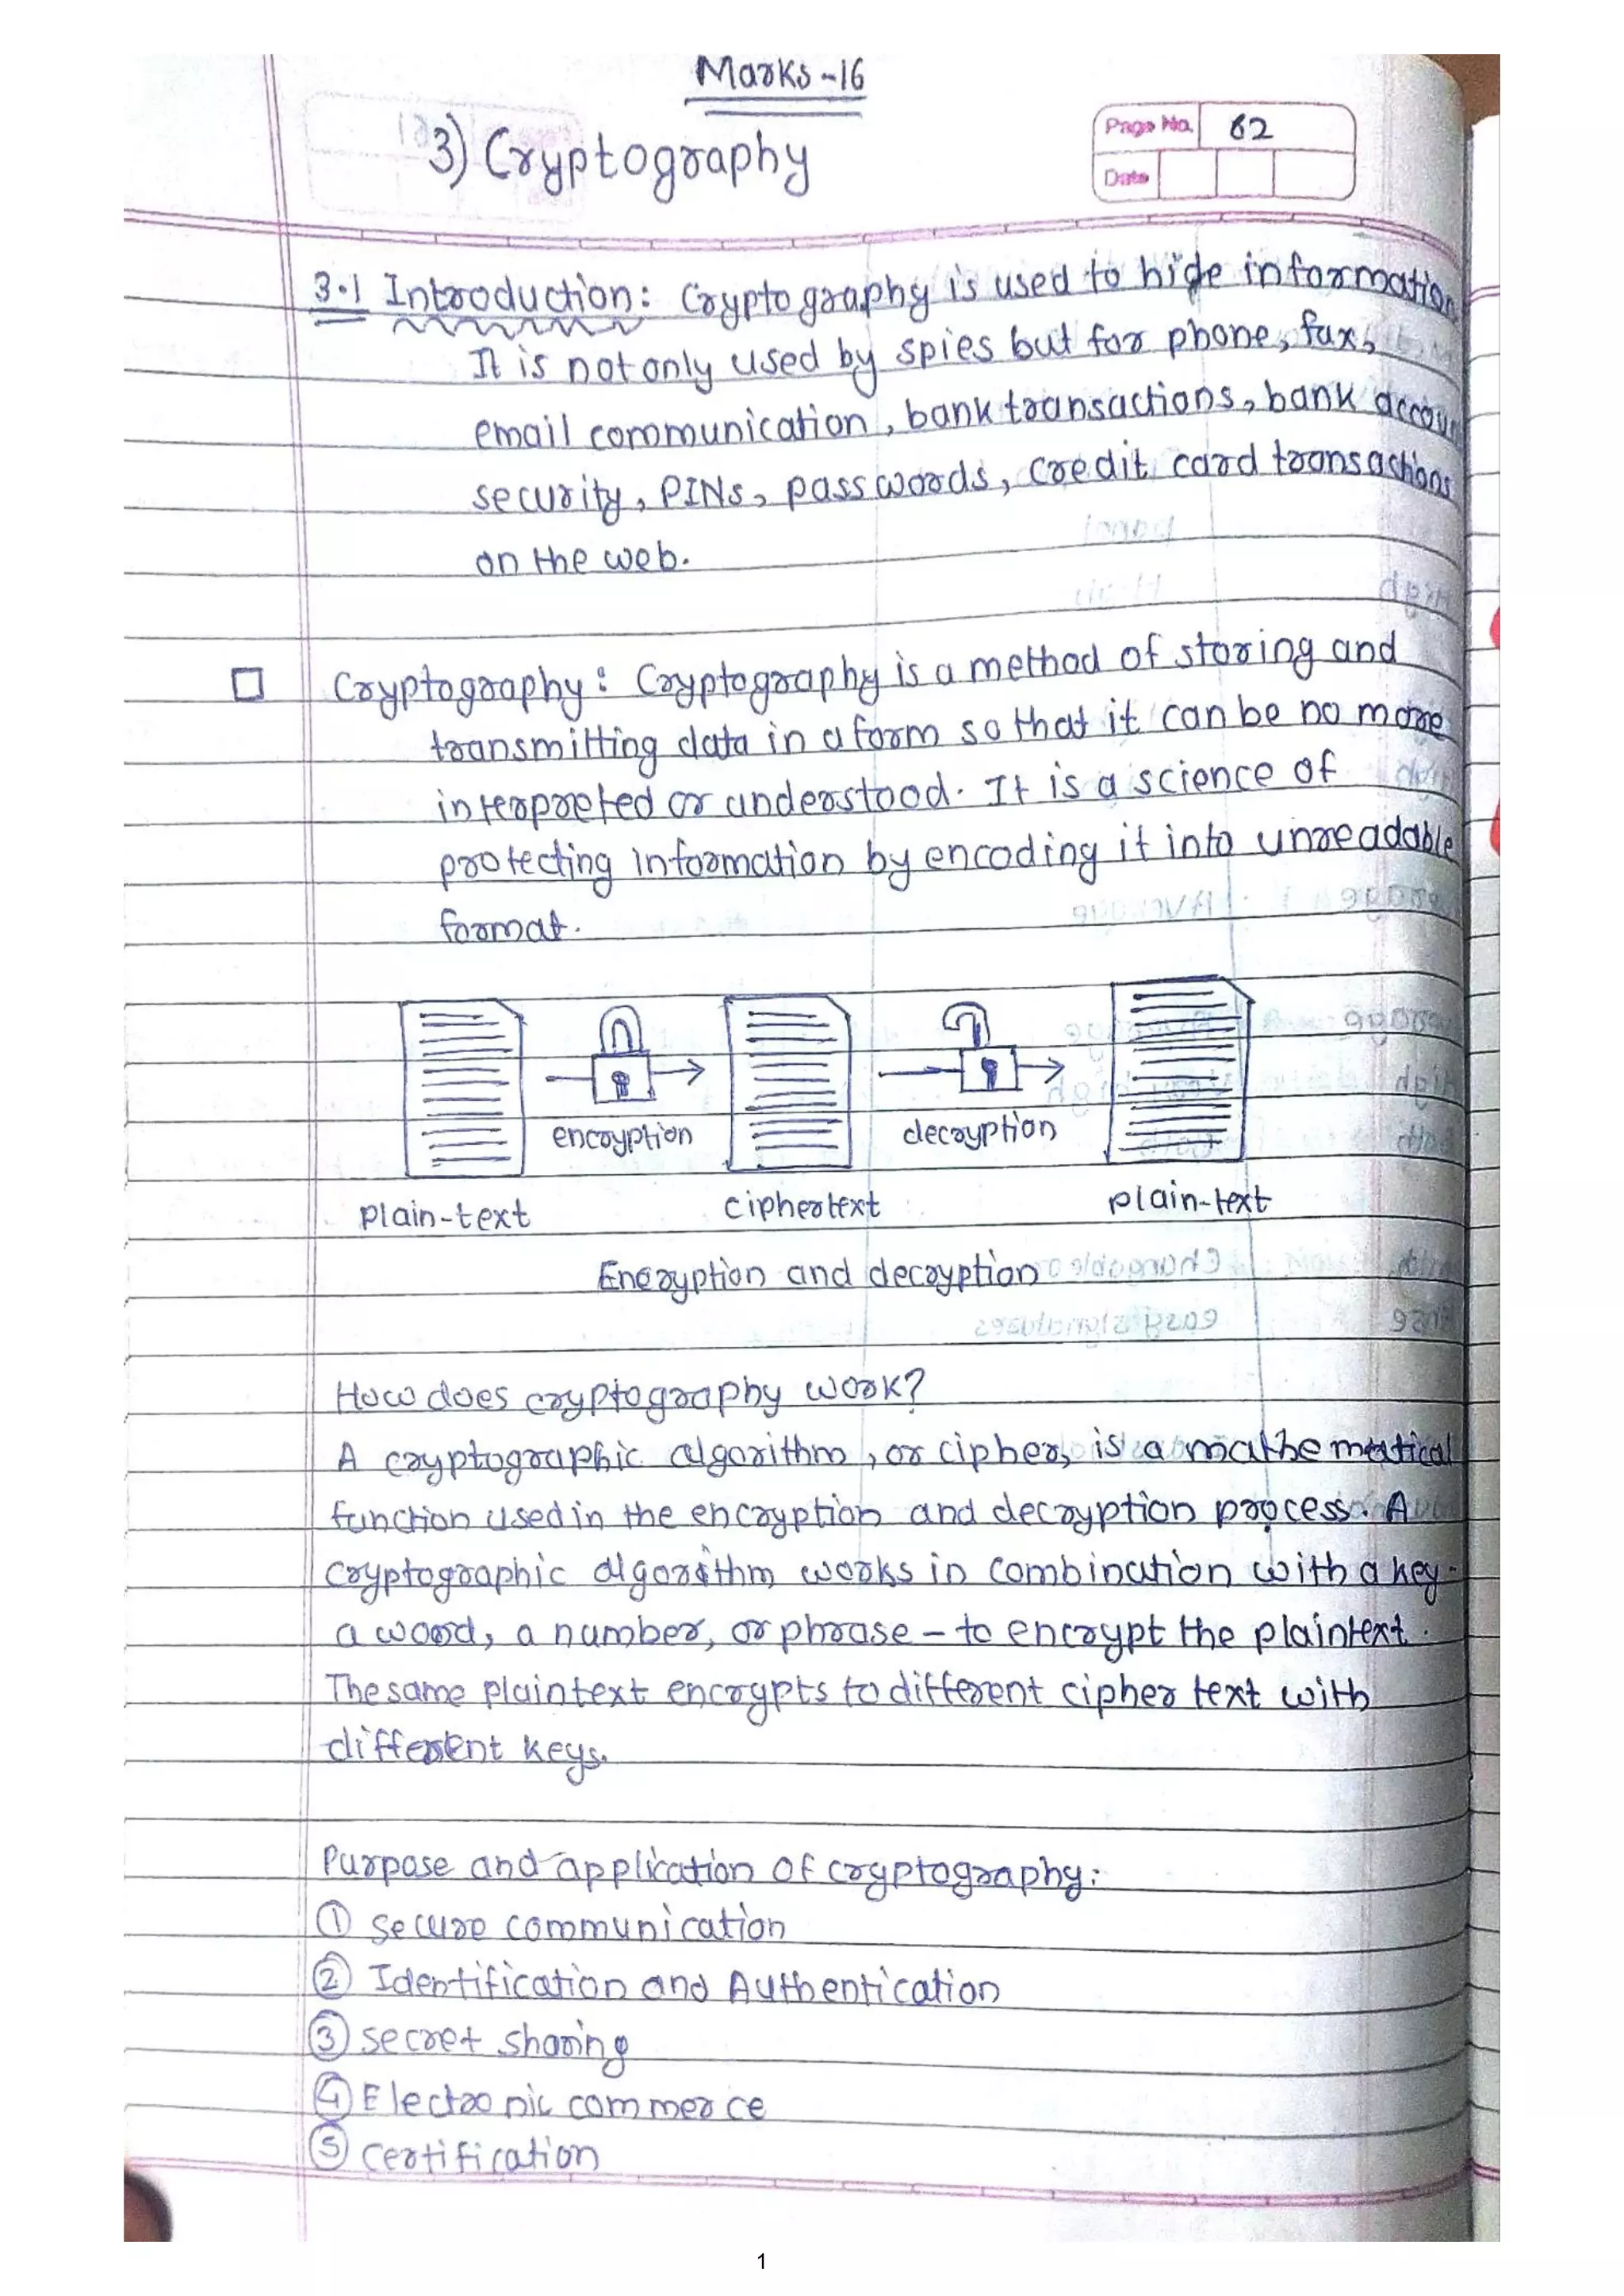 Marks-16
3) Cryptography
Page No. 62
Date
3.1 Introduction: Cryptography is used to hide information
It is not only used by spies but for phone, fax,
email communication, bank transactions, bank accoun
security, PINs, passwords, credit card transactions
on the web.
Cryptography: Cryptography is a method of storing and
transmitting data in a form so that it can be no more
interpreted or understood. It is a science of
protecting information by encoding it into unreadable
format.
encryption decryption
plain-text ciphertext plain-text
Encryption and decryption
How does cryptography work?
A cryptographic algorithm, or cipher, is a mathematical
function used in the encryption and decryption process. A
cryptographic algorithm works in combination with a key-
a word, a number, or phrase - to encrypt the plaintext.
The same plaintext encrypts to different cipher text with
different keys.
Purpose and application of cryptography:
① secure communication
② Identification and Authentication
③ secret sharing
④ Electronic commerce
⑤ certification
1